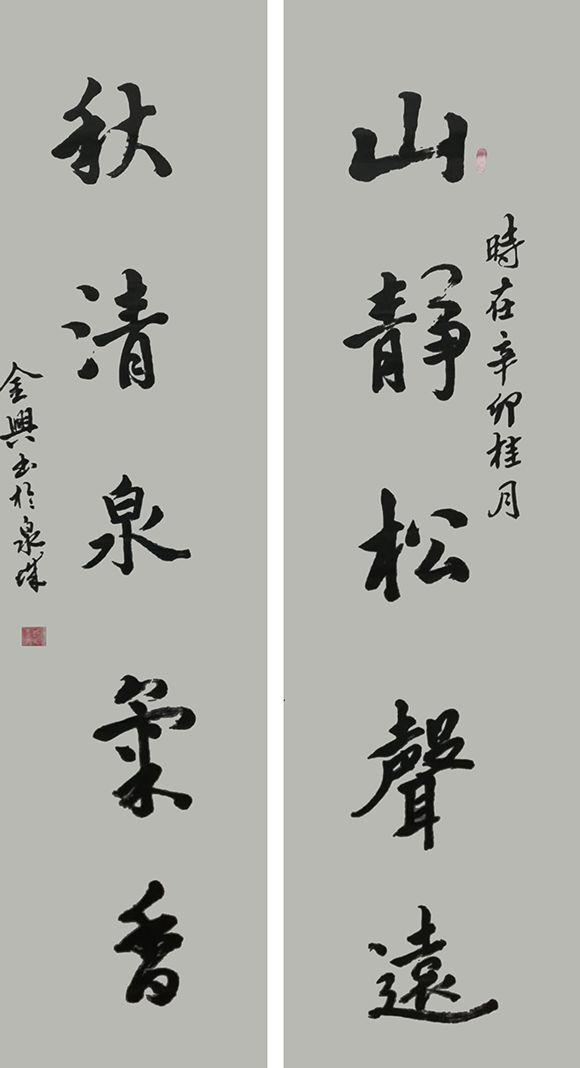 山靜松聲遠
時在辛卯桂月
秋清泉氣香
金興書於泉城